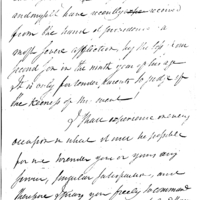 and myself have recently received
from the hand of providence a
most severe affliction, by the loss of our
second son in the ninth year of his age
It is only for tender Parents to judge of
the keenness of the moment
I shall experience on every
occasion in which it may be possible
for me to render you or yours any
service, singular satisfaction, and
therefore pray you freely to command